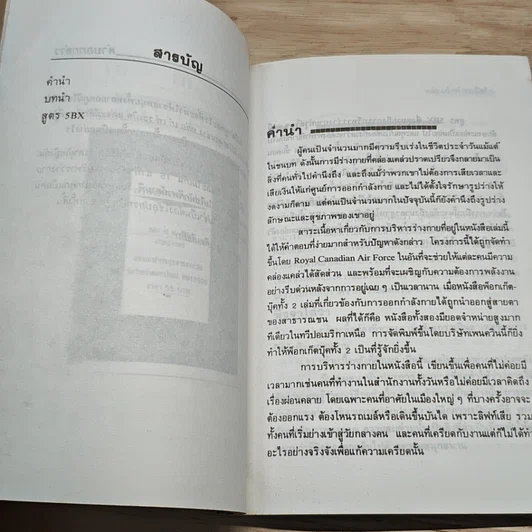 สารบัญ
คำนำ
บทนำ
สูตร 5BX
คำนำ
ผู้คนเป็นจำนวนมากมีความรีบเร่งในชีวิตประจำวันแม้แต่
ในชนบท ดังนั้นการมีร่างกายที่คล่องแคล่วปราดเปรียวจึงกลายมาเป็น
สิ่งที่คนทั่วไปคำนึงถึง และถึงแม้ว่าพวกเขาไม่ต้องการเสียเวลาและ
เสียเงินให้แก่ศูนย์การออกกำลังกาย และไม่ได้ตั้งใจรักษารูปร่างให้
งดงามก็ตาม แต่คนเป็นจำนวนมากในปัจจุบันนี้ก็ยังคำนึงถึงรูปร่าง
ลักษณะและสุขภาพของเขาอยู่
สาระเนื้อหาเกี่ยวกับการบริหารร่างกายที่อยู่ในหนังสือเล่มนี้
ได้ให้คำตอบที่ง่ายมากสำหรับปัญหาดังกล่าว โครงการนี้ได้ถูกจัดทำ
ขึ้นโดย Royal Canadian Air Force ในอันที่จะช่วยให้แต่ละคนมีความ
คล่องแคล่วได้สัดส่วน และพร้อมที่จะเผชิญกับความต้องการพลังงาน
อย่างรีบด่วนหลังจากการอยู่เฉย ๆ เป็นเวลานาน เมื่อหนังสือพ็อกเก็ต-
บุ๊คทั้ง 2 เล่มที่เกี่ยวข้องกับการออกกำลังกายได้ถูกนำออกสู่สายตา
ของสาธารณชน ผลที่ได้ก็คือ หนังสือทั้งสองมียอดจำหน่ายสูงมาก
ทีเดียวในทวีปอเมริกาเหนือ การจัดพิมพ์ขึ้นโดยบริษัทเพนควินนี้ก็ยิ่ง
ทำให้พ็อกเก็ตบุ๊คทั้ง 2 เป็นที่รู้จักยิ่งขึ้น
การบริหารร่างกายในหนังสือนี้ เขียนขึ้นเพื่อคนที่ไม่ค่อยมี
เวลามากเช่นคนที่ทำงานในสำนักงานทั้งวันหรือไม่ค่อยมีเวลาคิดถึง
เรื่องผ่อนคลาย โดยเฉพาะคนที่อาศัยในเมืองใหญ่ ๆ ที่บางครั้งอาจจะ
ต้องออกแรง ต้องโหนรถเมล์หรือเดินขึ้นบันได เพราะลิฟท์เสีย รวม
ทั้งคนที่เริ่มย่างเข้าสู่วัยกลางคน และคนที่เครียดกับงานแต่ก็ไม่ได้ทำ
อะไรอย่างจริงจังเพื่อแก้ความเครียดนั้น